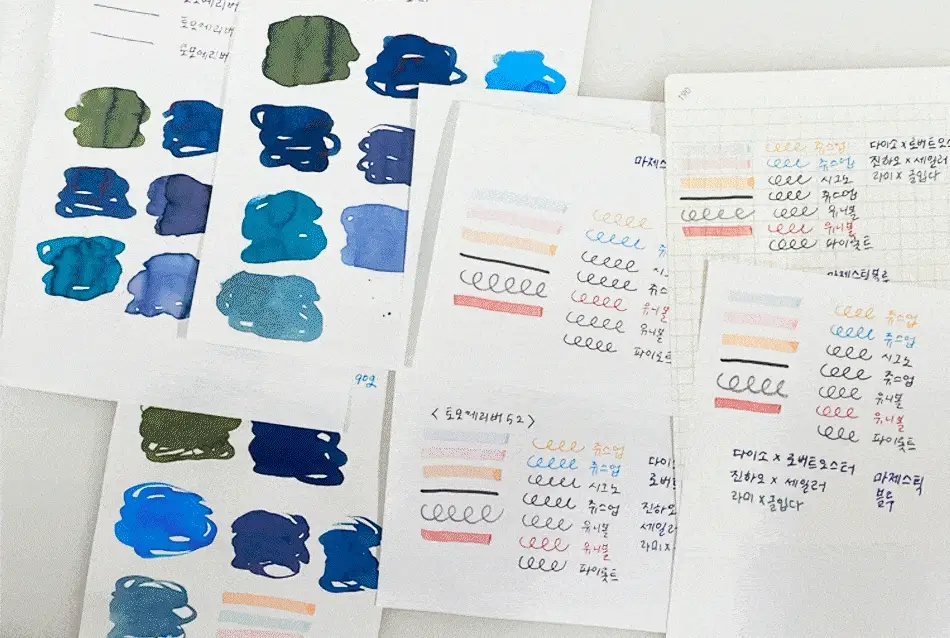 토모에리버
토모에리버
토모에리버
90g
마제스
시
쥬스
유니볼
유니볼
파이롯트
쥬스업 다이소 x 로버트오스
쥬스업 진하오 x 세일러
시그노 라미 x 글입다
쥬스업
유니볼
유니볼
파이롯트
마제스틱블루
쥬스업
쥬스업
시그노
쥬스업
유니볼
유니볼
파이롯트
다이소 x 로버트오스터
진하오 x 세일러
라미 x 글입다
마제스틱
블루
<토모에리버 52>
쥬스업 다이
쥬스업 로버
시그노
쥬스업 진하오
유니볼 세일러
유니볼 라미 x
파이롯트